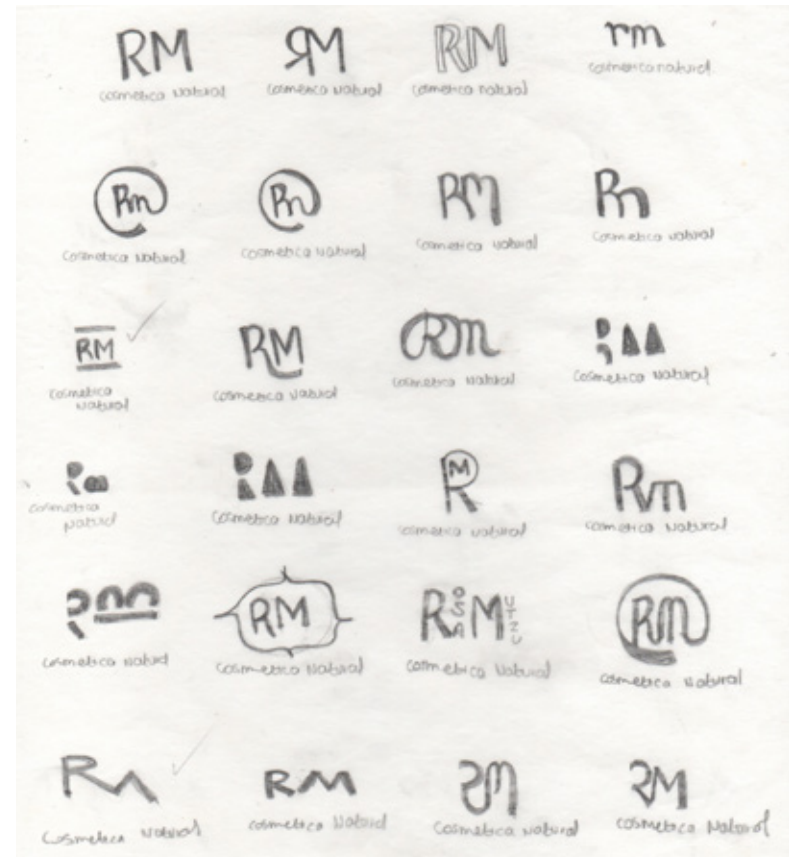 RM RM RM rm
cosmetica natural cosmetica natural cosmetica natural cosmetica natural
Rm Rm RM Rm
cosmetica natural cosmetica natural cosmetica natural cosmetica natural
RM RM Rm
cosmetica natural cosmetica natural cosmetica natural
cosmetica natural
RM Rm
cosmetica natural cosmetica natural cosmetica natural cosmetica natural
RM ROSA MUTZU Rm
cosmetica natural cosmetica natural cosmetica natural cosmetica natural
RM RM RM RM
cosmetica natural cosmetica natural cosmetica natural cosmetica natural